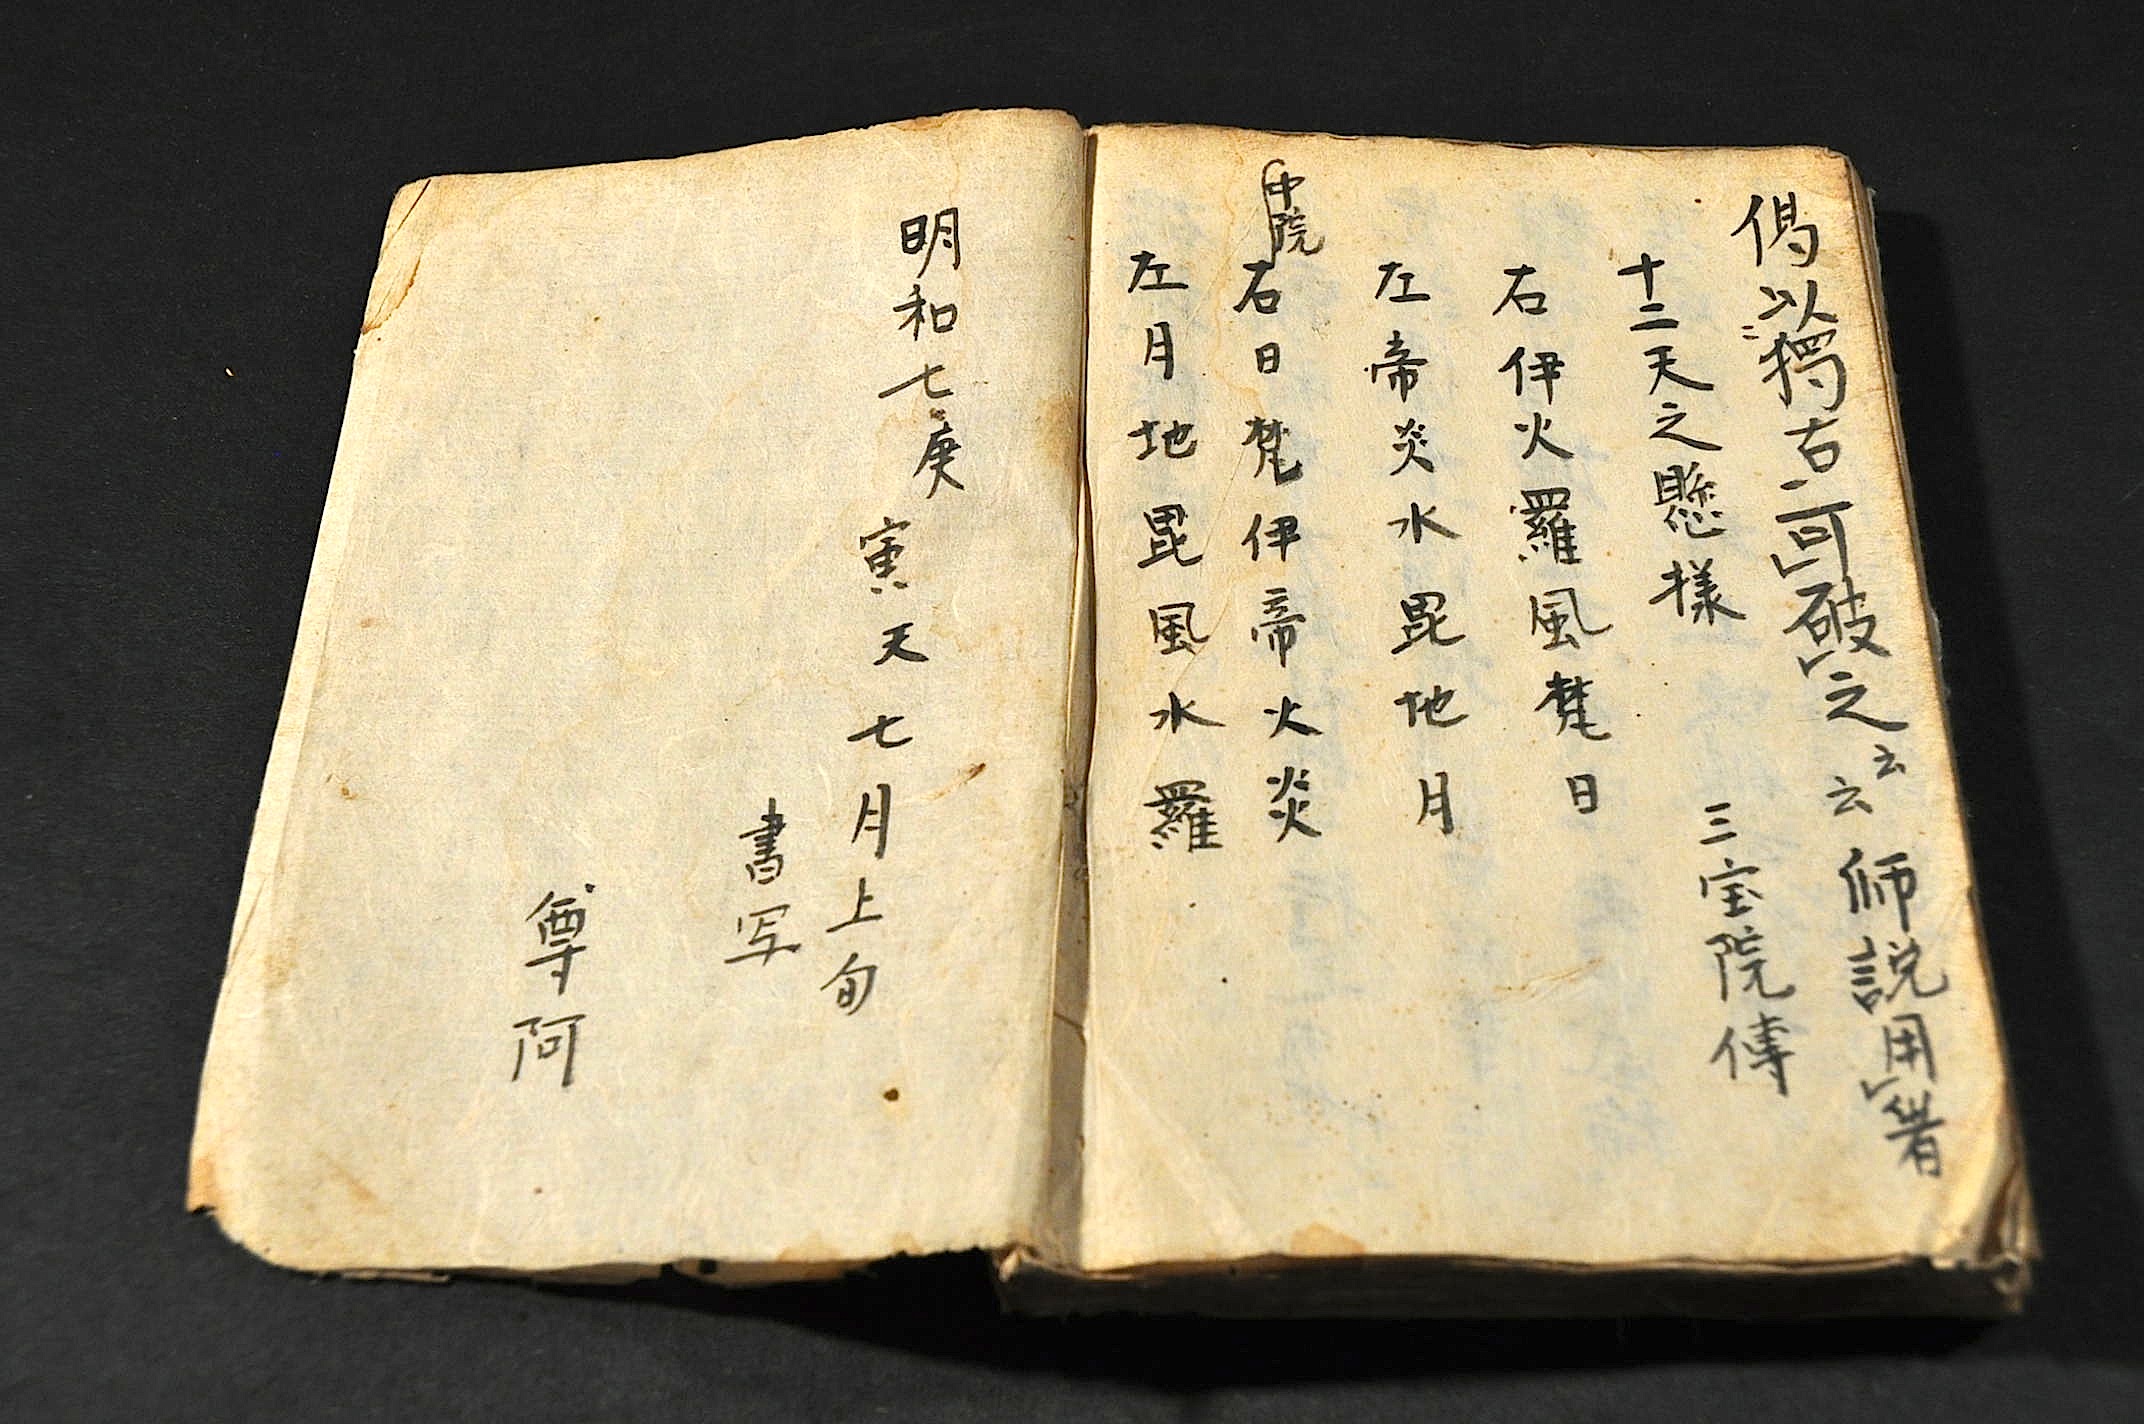 偈以獨古可破之云云師説用著
十二天之懸様 三宝院傳
右伊火羅風梵日
左帝炎水毘地月
中院
右日梵伊帝火炎
左月地毘風水羅
明和七庚寅天七月上旬
書写
尊阿